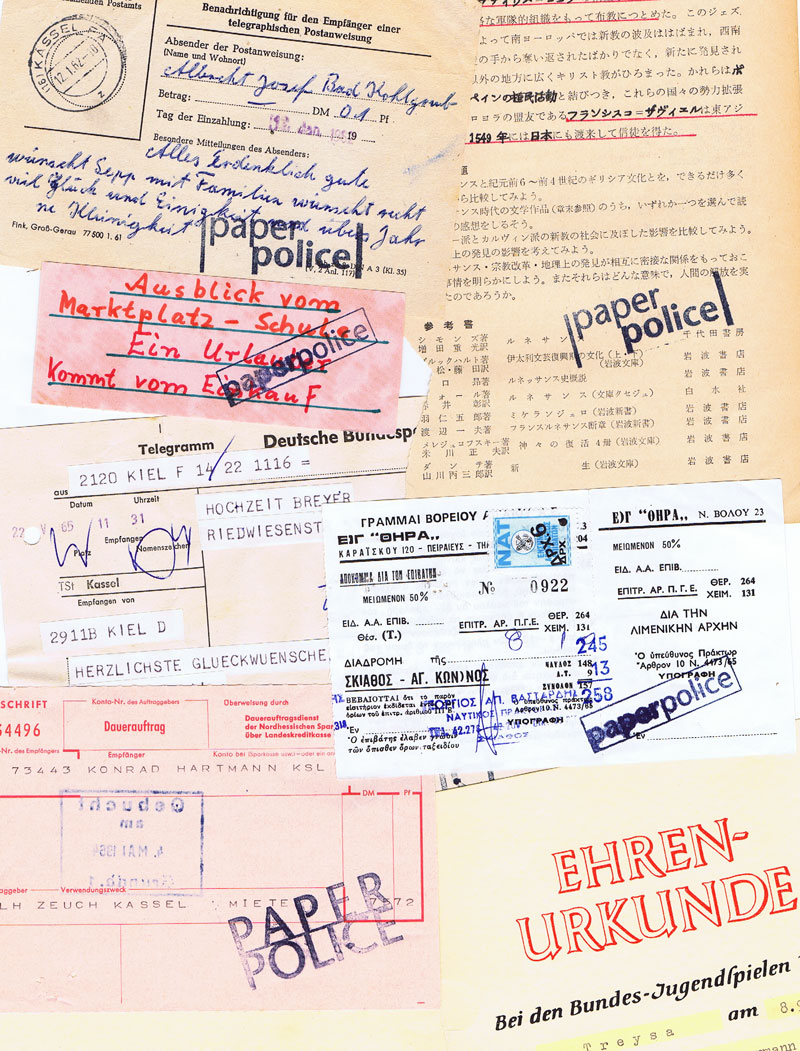 menden Postamts
Benachrichtigung für den Empfänger einer
telegraphischen Postanweisung
(16) KASSEL
12.1.62-16
z
Absender der Postanweisung:
(Name und Wohnort)
Albrecht Josef Bad Kohlgrub
Betrag: DM 01 Pf
Tag der Einzahlung: 19
Besondere Mitteilungen des Absenders:
Alles Erdenklich gute
wünscht Sepp mit Familien wünscht recht
viel Glück und Einigkeit und übers Jahr
ne Kleinigkeit
Fink, Groß-Gerau 77500 1.61
A 3 (Kl. 35)
(V, 2 Anl. 117)
paper
police
な軍隊的組織をもって布教につとめた。このジェズ
よって南ヨーロッパでは新教の波及ははばまれ，西南
の手から奪い返されたばかりでなく，新たに発見され
以外の地方に広くキリスト教がひろまった。かれらはポ
ペインの植民活動と結びつき，これらの国々の勢力拡張
ロヨラの盟友であるフランシスコ＝ザヴィエルは東アジ
1549年には日本にも渡来して信徒を得た。
題
ンスと紀元前6～前4世紀のギリシア文化とを，できるだけ多く
から比較してみよう。
ンス時代の文学作品（章末参照）のうち，いずれか一つを選んで読
の感想をしるそう。
ー派とカルヴィン派の新教の社会に及ぼした影響を比較してみよう。
上の発見の影響を考えてみよう。
サンス・宗教改革・地理上の発見が相互に密接な関係をもっておこ
事情を明らかにしよう。またそれらはどんな意味で，人間の解放を実
たのであろうか。
参考書
シモンズ著
増田重光訳
ルネサンス
千代田書房
ブルックハルト著
松・藤田訳
伊太利文芸復興期の文化（上・下）
（岩波文庫）
岩波書店
ロ昂著
ルネッサンス史概説
岩波書店
ォール著
井彰訳
ルネサンス（文庫クセジュ）
白水社
羽仁五郎著
ミケランジェロ（岩波新書）
岩波書店
渡辺一夫著
フランスルネサンス断章（岩波新書）
岩波書店
メレジュコフスキー著
米川正夫訳
神々の復活 4冊（岩波文庫）
岩波書店
ダンテ著
山川丙三郎訳
新生（岩波文庫）
岩波書店
paper
police
Ausblick vom
Marktplatz - Schule
Ein Urlauber
kommt vom Einkauf
paperpolice
Telegramm
Deutsche Bundespo
aus
2120 KIEL F 14/22 1116 =
Datum
Uhrzeit
22 V 65 11 31
Platz
Empfangen
Namenszeichen
HOCHZEIT BREYER
RIEDWIESENST
TSt Kassel
Empfangen von
2911B KIEL D
HERZLICHSTE GLUECKWUENSCHE
ΓΡΑΜΜΑΙ ΒΟΡΕΙΟΥ
ΕΙΓ "ΘΗΡΑ,,
ΚΑΡΑΤΣΚΟΥ 120 - ΠΕΙΡΑΙΕΥΣ - ΤΗ
204
ΝΑΤ
ΔΡΧ.6
ΔΡΧ
ΑΠΟΚΟΜΜΑ ΔΙΑ ΤΟΝ ΕΠΙΒΑΤΗΝ
ΜΕΙΩΜΕΝΟΝ 50%
№ 0922
ΕΙΔ. Α.Α. ΕΠΙΒ.
ΕΠΙΤΡ. ΑΡ. Π.Γ.Ε.
ΘΕΡ. 264
ΧΕΙΜ. 131
Θέσ. (Τ.)
ΔΙΑΔΡΟΜΗ τῆς
ΣΚΙΑΘΟΣ - ΑΓ. ΚΩΝ)ΝΟΣ
ΝΑΥΛΟΣ 148
Λ.Τ. 9
ΣΥΝΟΛΟΝ 157
245
13
258
ΒΕΒΑΙΟΥΤΑΙ ὅτι τὸ παρὸν
ΥΠΟΓΡΑΦΗ
Ὁ ἐπιβάτης ἔλαβεν γνῶσιν
τῶν ὄπισθεν ὅρων ταξειδίου
ΓΕΩΡΓΙΟΣ ΑΠ. ΒΑΣΤΑΡΔΗΣ
ΝΑΥΤΙΚΟΣ
ΣΚΙΑΘΟΣ
ΕΙΓ "ΘΗΡΑ,, Ν. ΒΟΛΟΥ 23
ΜΕΙΩΜΕΝΟΝ 50%
ΕΙΔ. Α.Α. ΕΠΙΒ.
ΕΠΙΤΡ. ΑΡ. Π.Γ.Ε.
ΘΕΡ. 264
ΧΕΙΜ. 131
ΔΙΑ ΤΗΝ
ΛΙΜΕΝΙΚΗΝ ΑΡΧΗΝ
Ὁ ὑπεύθυνος Πράκτωρ
Ἄρθρον 10 Ν. 4473/65
ΥΠΟΓΡΑΦΗ
Ἐν
paperpolice
SCHRIFT
34496
Konto-Nr. des Auftraggebers
Dauerauftrag
Überweisung durch
Dauerauftragsdienst
der Nordhessischen Spar
über Landeskreditkasse
Nr. des Empfängers
Empfänger
73443 KONRAD HARTMANN KSL
DM
Pf
Gebucht
am
4. MAI 196
Verwendungszweck
LH ZEUCH KASSEL MIETE
72
PAPER
POLICE
EHREN-
URKUNDE
Bei den Bundes-Jugendspielen
Treysa am 8.9